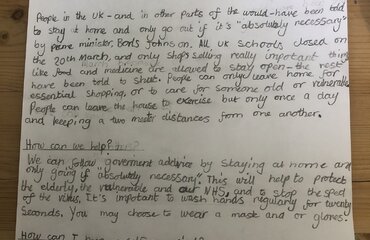 People in the UK - and in other parts of the would - have been told
to stay at home and only go out if it's "absolutely necessary"
by prime minister Boris Johnson. All UK schools closed on
the 20th March, and only shops selling really important things
like food and medicine are allowed to stay open - the rest
have been told to shut. People can only leave home for
essential shopping, or to care for someone old or vulnerable.
People can leave the house to exercise but only once a day
and keeping a two meter distances from one another.
How can we help?
We can follow goverment advice by staying at home and
only going if "absolutely necessary". This will help to protect
the elderly, the vulnerable and our NHS, and to stop the spred
of the virus. It's important to wash hands regularly for twenty
seconds. You may choose to wear a mask and or gloves.
How can I